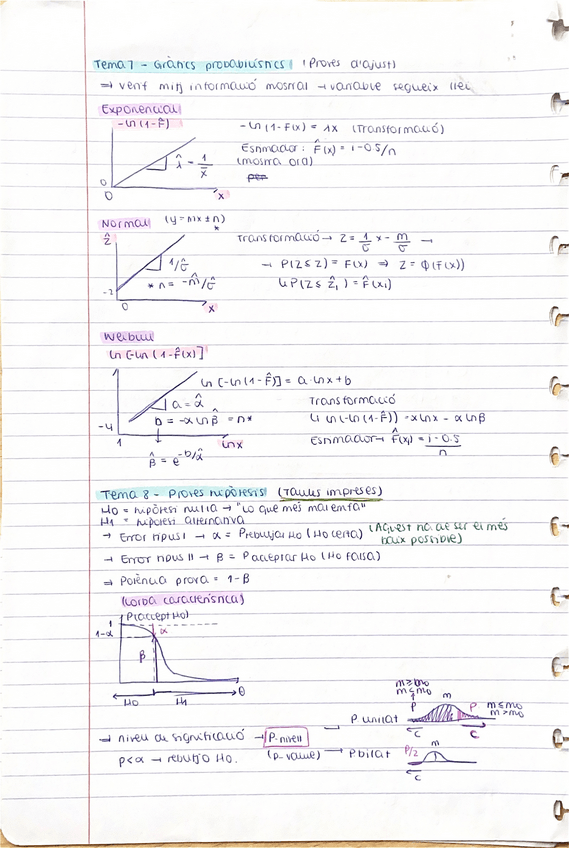 Tema 7 - Gràfics probabilístics (Proves d'ajust)
⇒ venf mitj informació mostral → variable segueix llei
Exponencial
-ln(1-F̂)
-ln(1-F(x)) = λx (Transformació)
Estimador: F̂(x) = i-0.5/n
(mostra ord)
λ̂ = 1/x̄
0
0
x
Normal (y = mx ± n)
*
ẑ
Transformació → Z = 1/σ x - m/σ →
1/σ̂
→ P(Z ≤ z) = F(x) ⇒ Z = Φ(F(x))
* n = -m̂/σ̂
↳ P(Z ≤ ẑ₁) = F̂(x₁)
-2
0
x
Weibull
ln[-ln(1-F̂(x)]
1
ln[-ln(1-F̂)] = a·lnx+b
a = α̂
Transformació
b = -α ln β̂ = n*
↳ ln(-ln(1-F̂)) = αlnx - αlnβ
-4
1
lnx
Estimador → F̂(x) = i-0.5/n
β̂ = e^-b/α̂
Tema 8 - Proves hipòtesis (Taules impreses)
H0 = hipòtesi nul·la → "Lo que més m'alenta"
H1 = hipòtesi alternativa
→ Error tipus I → α = P rebutjar H0 (H0 certa) (Aquest ha de ser el més
baix possible)
→ Error tipus II → β = P acceptar H0 (H0 falsa)
⇒ Potència prova = 1-β
(corba característica)
P(accept H0)
1
1-α
α
β
θ
H0
H1
m≥m0
m≤m0
m
P
P
m≤m0
m>m0
P unilat
C
C
→ nivell de significació → P-nivell
p<α → rebutjo H0.
(p-value)
→ P bilat
P/2
m
C